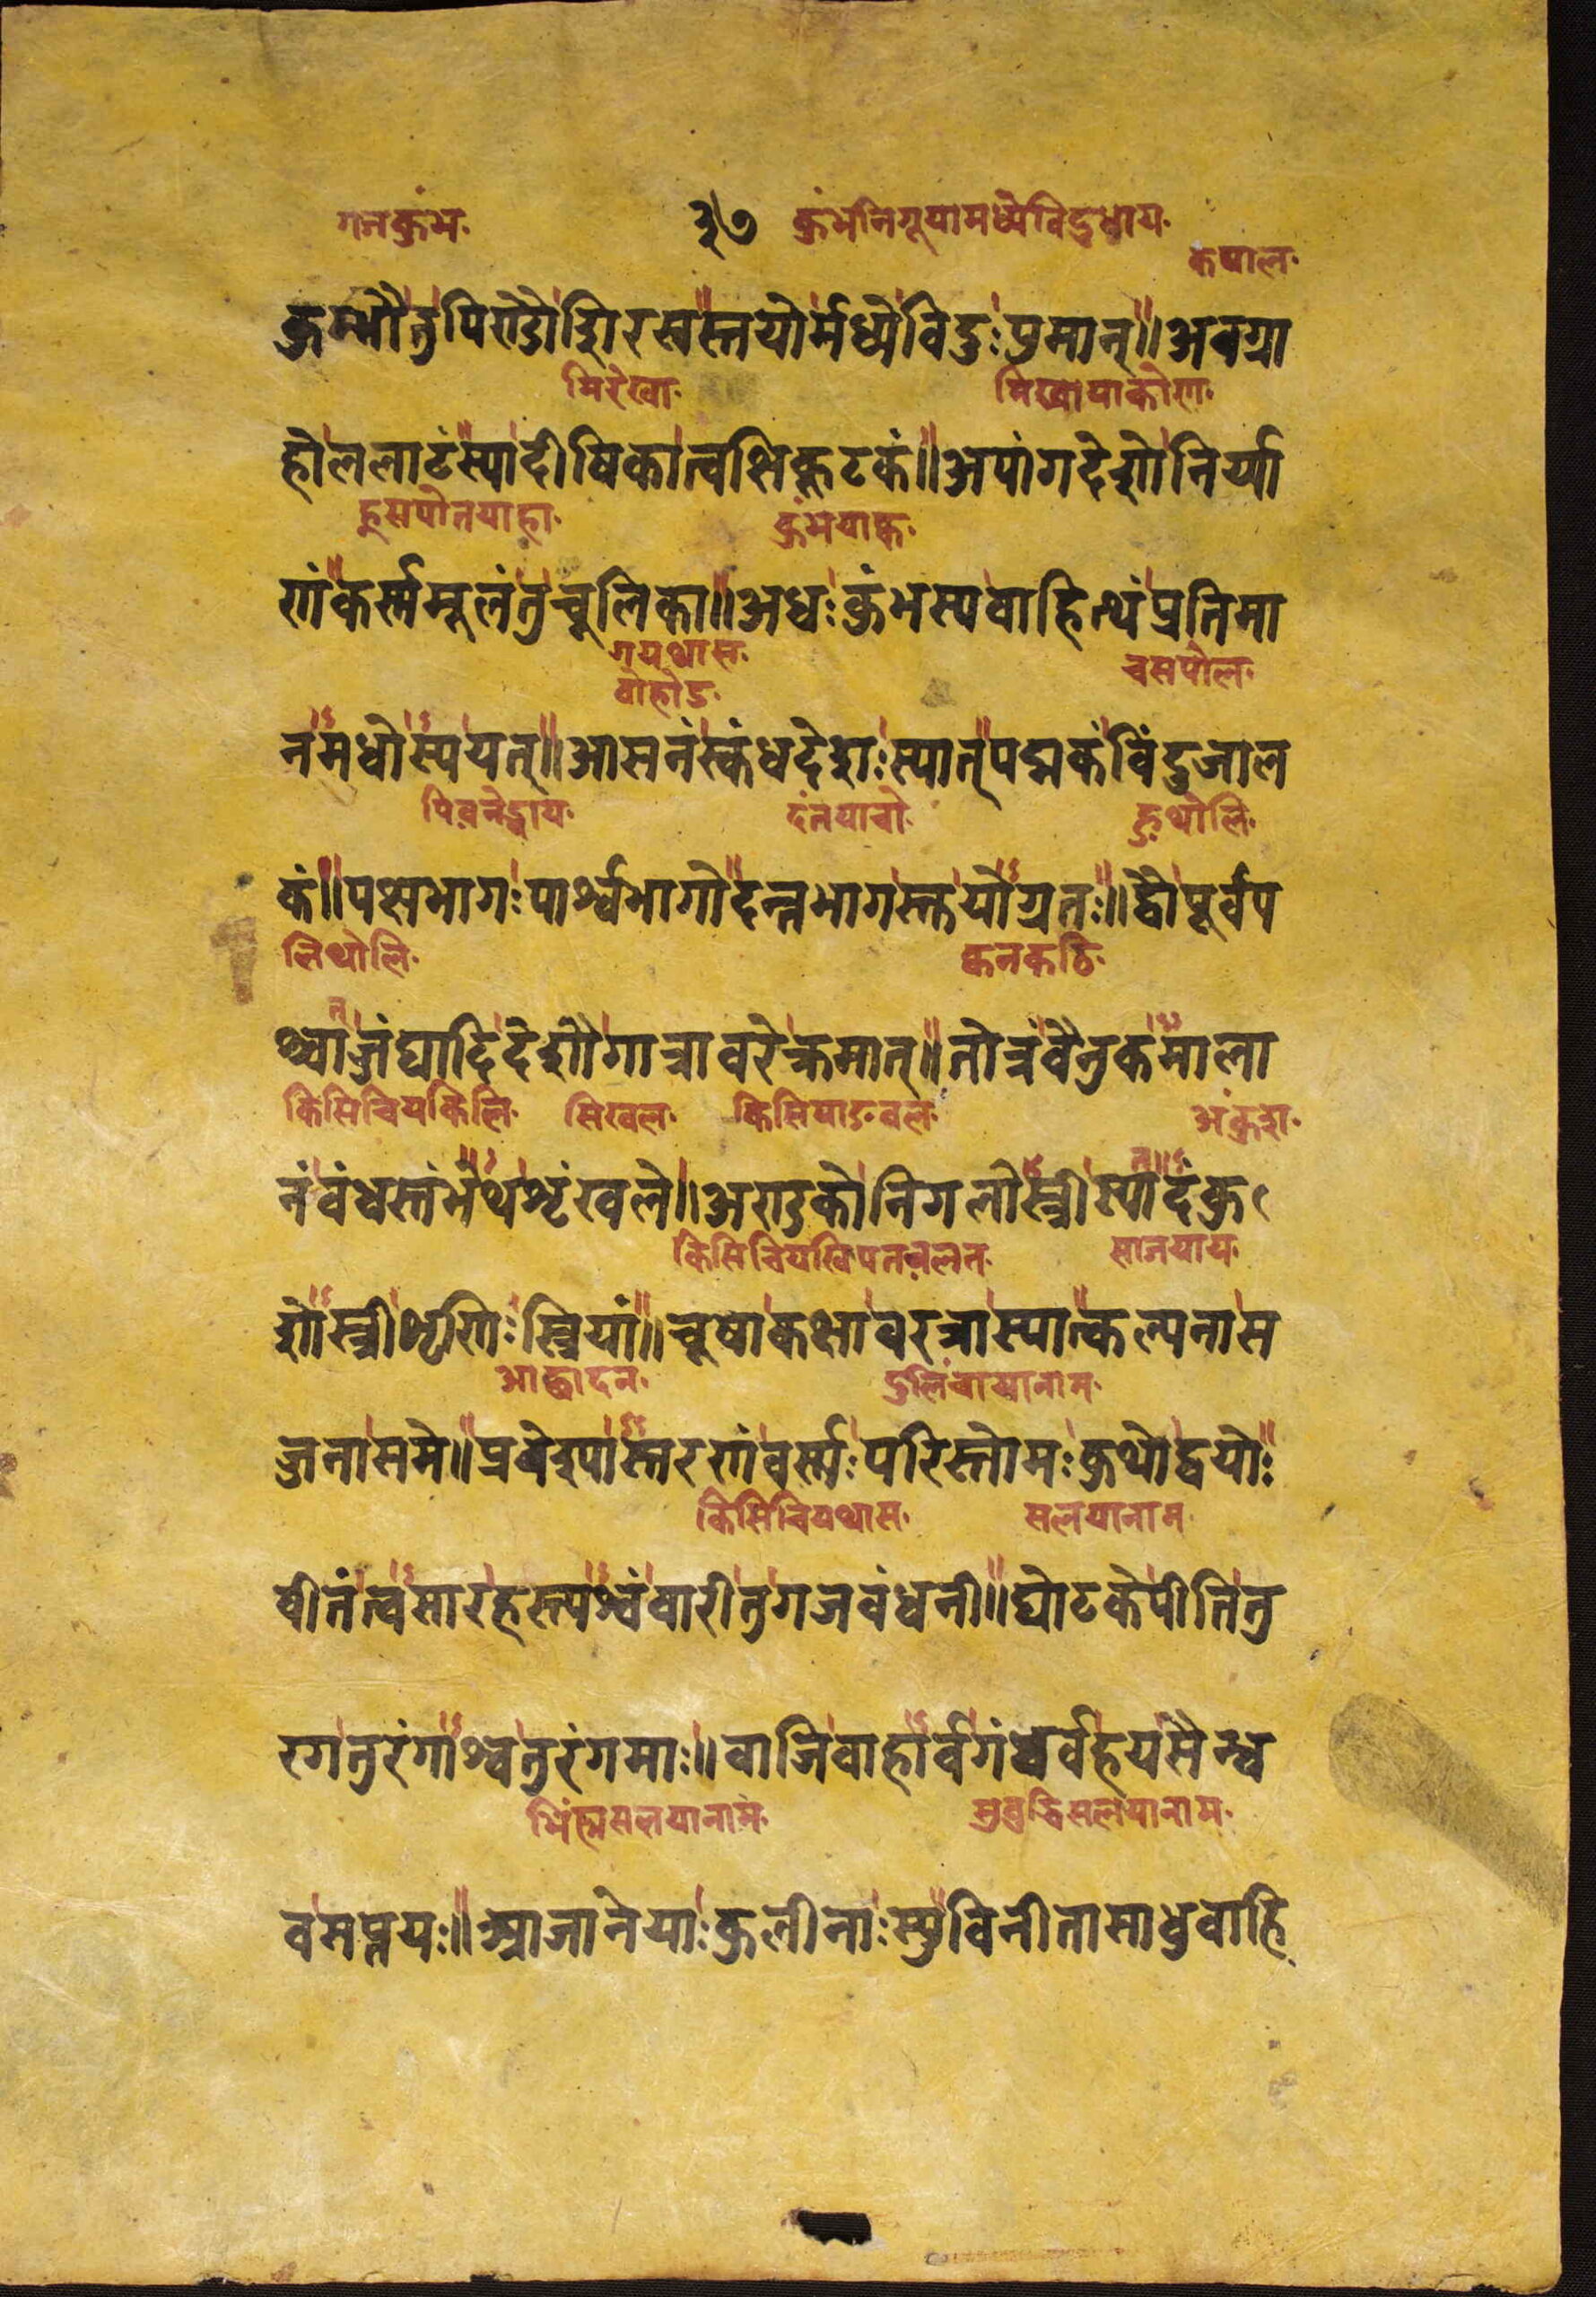 गजकुंभ. ३७ कुंभनिगूयामध्येविदुधाय.
कपाल.
कुम्भौतुपिण्डौशिरसस्तयोर्मध्येविदुःपुमान्॥अवग्रा
मिरंखा. मिखायाकोण.
होललाटंस्यादीषिकात्वक्षिकूटकं॥अपांगदेशोनिर्या
ह्नसपोतयाह्रा. कुंभयाक्व.
णंकर्स्ममूलंतुचूलिका॥अधःकुंभस्यवाहित्थंप्रतिमा
गयथास. चसपोल.
वोहोड.
नमधोस्ययत्॥आसनंस्कंधदेशःस्यात्पद्मकंविंदुजाल
पिवनेद्वाय. दंतयाचो. ह्नथोलि.
कं॥पक्षभागःपार्श्वभागोदन्तभागस्तयोग्रतः॥द्वौपूर्वप
लिथोलि. कनकठि.
श्चाज्जंघादिदेशौगात्रावरेक्रमात्॥तोत्रंवैनुकमाला
किसिचियकिलि. सिखल. किसियाङवल. अंकुश.
नंवंधस्तंभेथशृंखले॥अण्डुकोनिगलोस्त्रीस्यादंकु
किसिचियखिपतवलत. साजयाय.
शोस्त्रीशृणिःस्त्रियां॥चूषाकक्षावरत्रास्यात्कल्पनास
आछादन. डुलिंचायानाम.
ज्जनासमे॥प्रवेण्यास्तरणंवर्स्मःपरिस्तोमःकुथोद्वयोः
किसिचियथास. सलयानाम.
वीतंत्वसारंहस्त्यश्वंवारीतुगजवंधनी॥घोटकेपीतितु
रगतुरंगाश्वतुरंगमाः॥वाजिवाहार्वगंधर्वहयसैन्ध
भिंह्मसलयानाम. सुवुद्धिसलयानाम.
वसप्तयः॥आजानेयाःकुलीनाःस्युविनीतासाधुवाहि